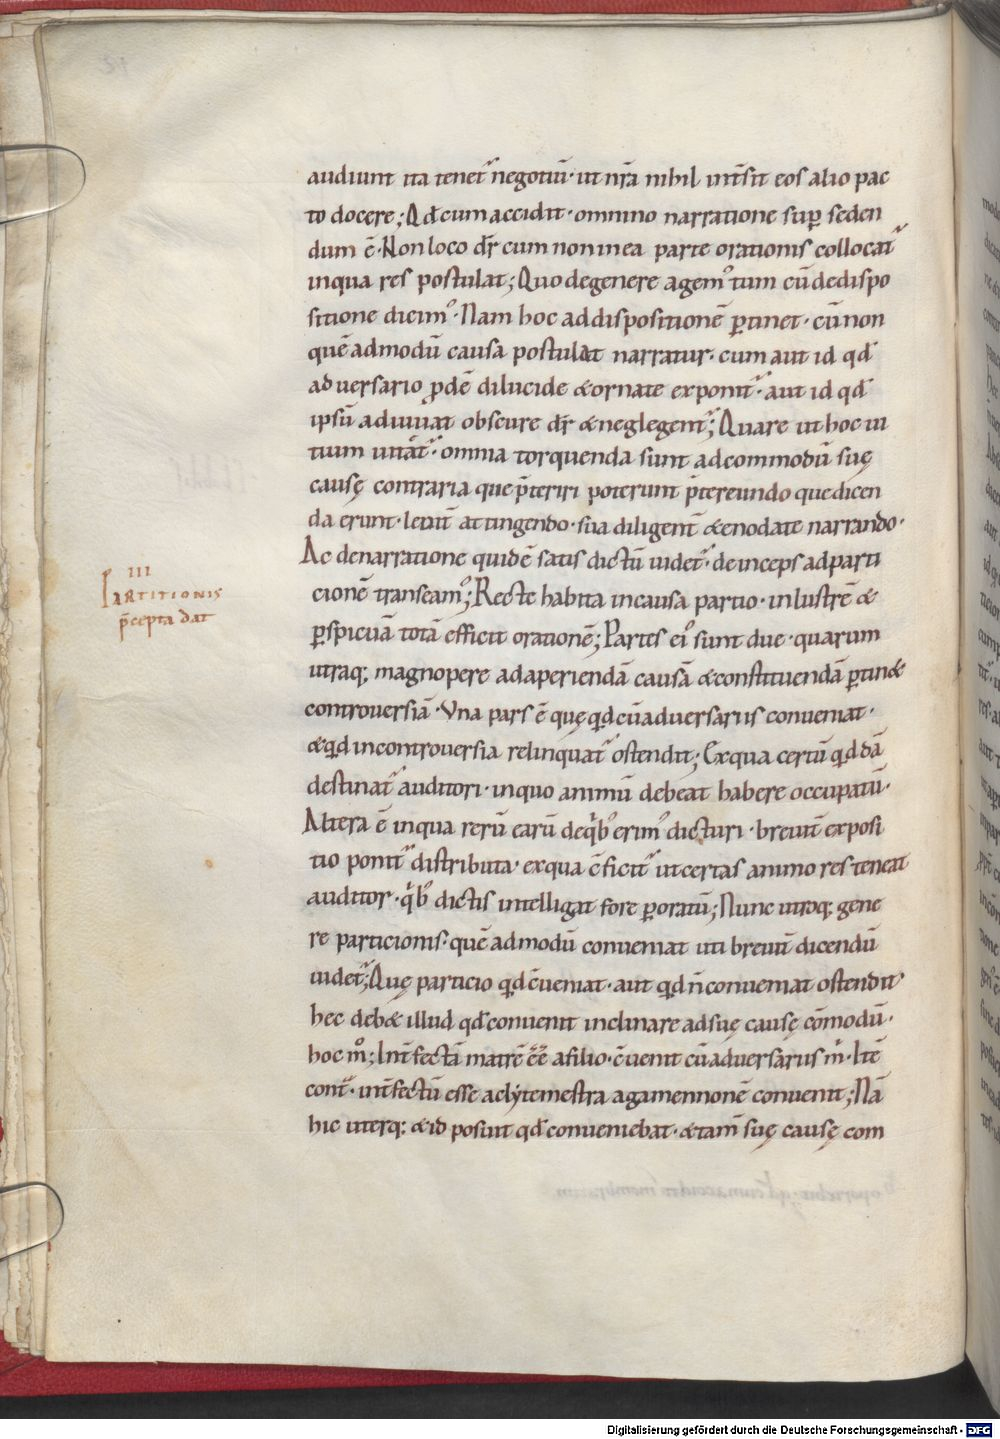 audiunt ita tenet᷑ negotiū· ut nr̄a nihil int̄sit eos alio pac
to docere; Qd̄ cum accidit· omnino narratione sup̲ seden
dum ē· Non loco dr̄ cum non in ea parte orationis collocat᷑
in qua res postulat; Quo de genere agem⁹ tum cū de dispo
sitione dicim⁹· Nam hoc ad dispositionē p̲tinet· cū non
quē ad modū causa postulat narratur· cum aut id qd̄
adversario ꝓdē dilucide & ornate exponit᷑· aut id qd̄
ipsū adiuuat obscure dr̄ & neglegent̄; Quare ut hoc ui
tium uitāt᷑· omnia torquenda sunt ad commodū suę
causę contraria que p̄teriri poterunt p̄tereundo que dicen
da erunt· leuit̄ attingendo· sua diligent̄ & enodate narrando·
Ac de narratione quidē satis dictū uidet᷑· deinceps ad parti
cionē transeam⁹; Recte habita in causa partio· inlustrē &
p̲spicuā totā efficit orationē; Partes ei⁹ sunt due· quarum
utraq; magnopere ad aperiendā causā & constituendā p̲tin&
controuersiā· Vna pars ē quę qd̄ cū aduersariis conueniat·
& qd̄ in controuersia relinquat᷑ ostendit; Ex qua certū qd̄dā
destinat᷑ auditori· in quo animū debeat habere occupatū·
Altera ē in qua rerū earū de qⁱb⁹ erim⁹ dicturi· breuit̄ exposi
tio ponit᷑ distributa· ex qua c̄ficit᷑ ut certas animo res teneat
auditor· qⁱb⁹ dictis intelligat fore p̲oratū; Nunc utroq; gene
re particionis· quē ad modū conueniat uti breuit̄ dicendū
uidet᷑; Quę particio qd̄ c̄ueniat· aut qd̄ n̄ conueniat ostendit
hec deb& illud qd̄ conuenit inclinare ad suę causę cōmodū·
hoc mᵒ; Int̄fectā matrē ēē a filio· c̄uenit cū aduersariis mⁱ· Itē
cont᷑· int̄fectū esse a clẏtemestra agamennonē conuenit; Nā
hic uterq; & id posuit qd̄ conueniebat· & tam̄ suę causę com
III
Partitionis
p̄cepta dat
Digitalisierung gefördert durch die Deutsche Forschungsgemeinschaft - DFG